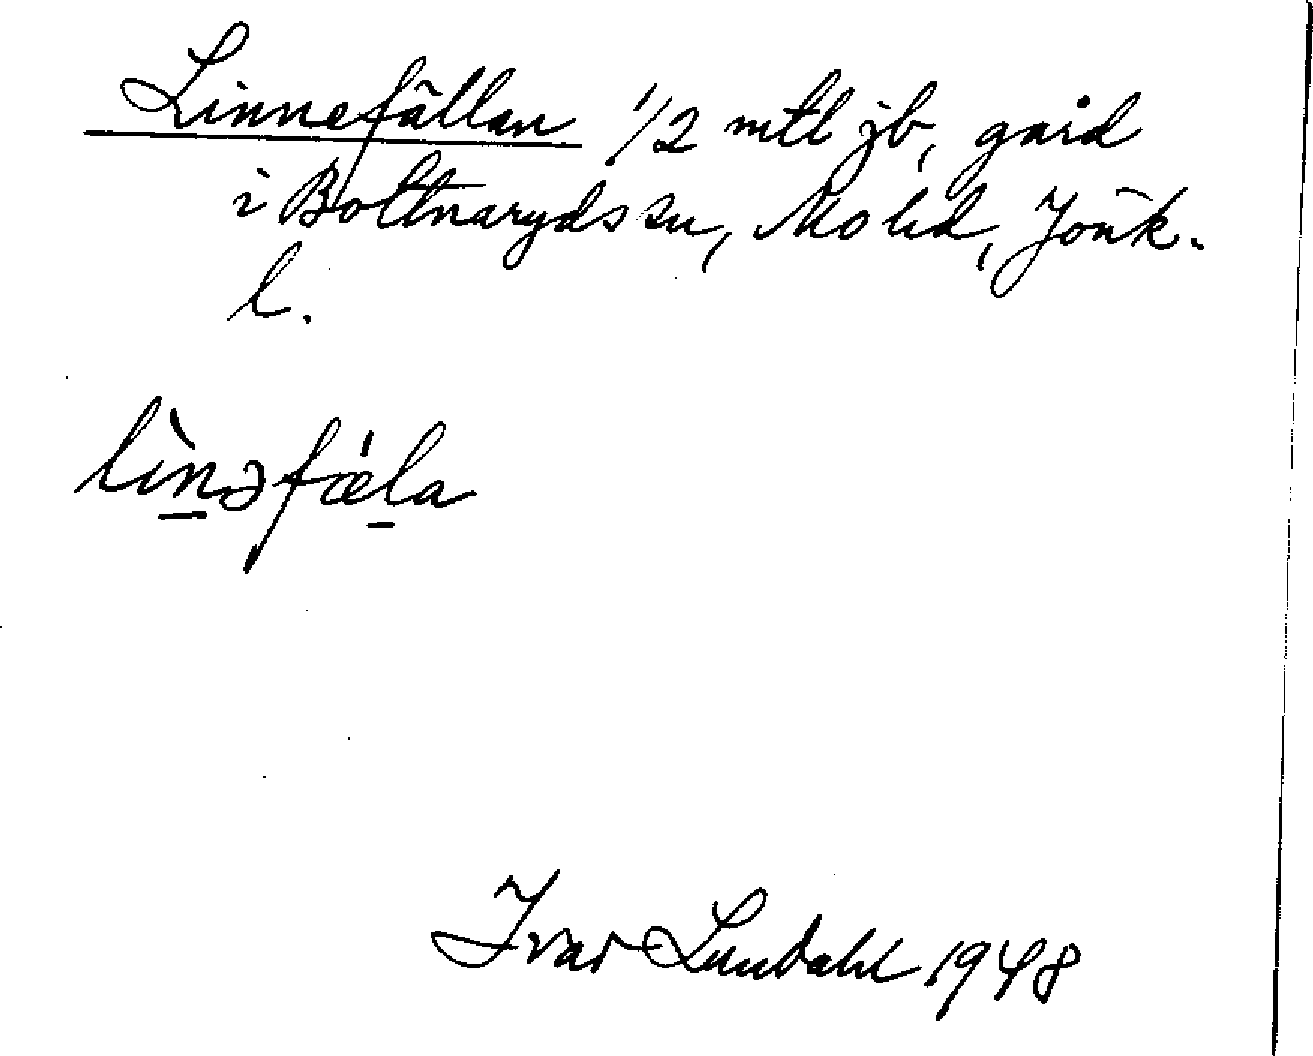 Linnefällan 1/2 mtl jb, gård
i Bottnaryds sn, Mo hd, Jönk.
l.
lìn̲əfǽl̲a
Ivar Lundahl 1948